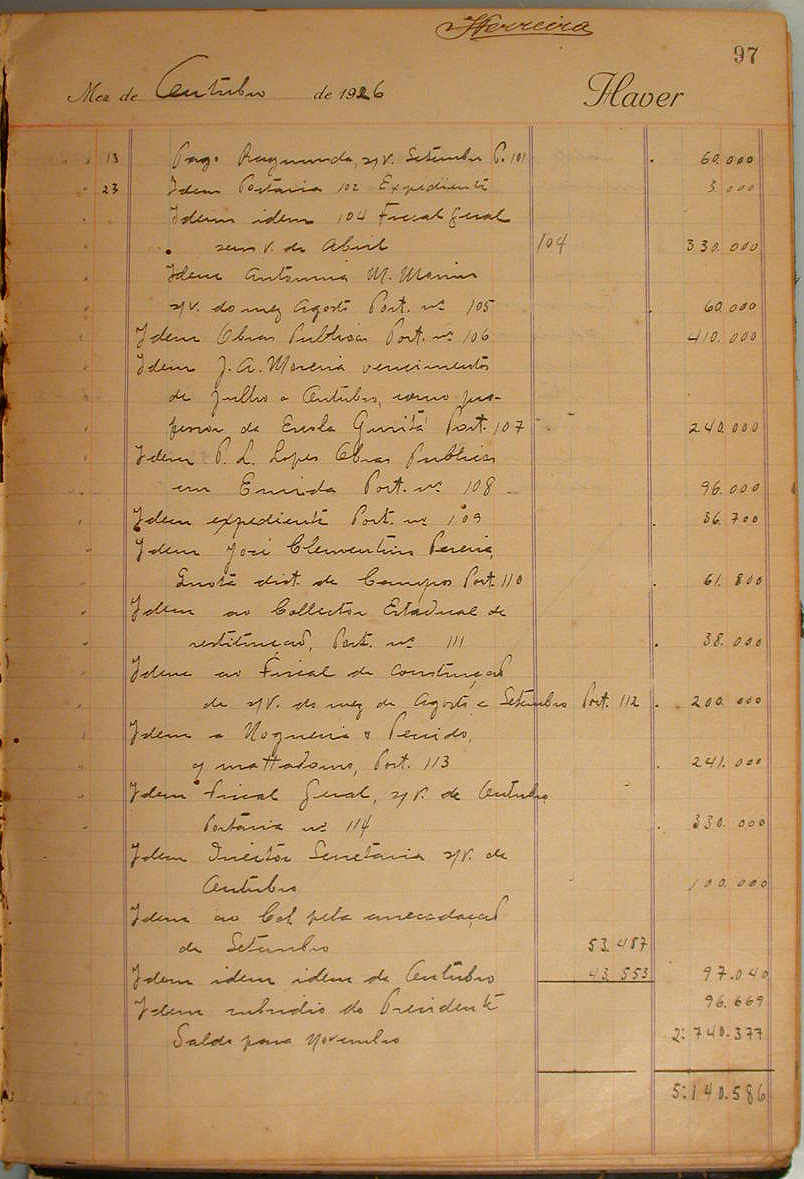 Ferreira
97
Mez de Outubro de 1926 Haver
13 Pago Raymundo, s/v. Setembro P. 101 60.000
23 Idem Portaria 102 Expediente 3.000
Idem idem 104 Fiscal Geral
seus v. de Abril 104 330.000
Idem Antonina M. Maria
s/v. do mez Agosto Port. nº 105 60.000
Idem Obras Publicas Port. nº 106 410.000
Idem J. A. Moreira vencimentos
de Julho a Outubro, como pro-
fessor da Escola Port. 107 240.000
Idem P. L. Lopes Obras Publicas
em Port. nº 108 96.000
Idem expediente Port. nº 109 36.700
Idem José Clementino Pereira,
dist. de Campos Port. 110 61.800
Idem ao Collector Estadual de
restituicao, Port. nº 111 38.000
Idem ao Fiscal de construçao
de s/v. do mez de Agosto e Setembro Port. 112 200.000
Idem a Nogueira & Penido,
Port. 113 241.000
Idem Fiscal Geral, s/v. de Outubro
Portaria nº 114 330.000
Idem Director Secretaria s/v. de
Outubro 100.000
Idem ao Col. pela arrecadaçao
de Setembro 53.487
Idem idem idem de Outubro 43.553 97.040
Idem subsidio do Presidente 96.669
Saldo para Novembro 2:740.377
5:140.586